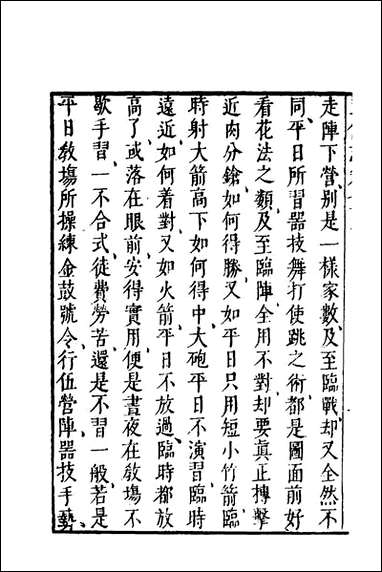 走陣下營、別是一樣家數、及至臨戰、却又全然不
同、平日所習器技舞打使跳之術、都是圖面前好
看花法之類、及至臨陣、全用不對、却要真正搏擊
近肉分鎗、如何得勝、又如平日只用短小竹箭、臨
時射大箭、高下如何得中、大砲平日不演習、臨時
遠近如何着對、又如火箭、平日不放過、臨時都放
高了、或落在眼前、安得實用、便是晝夜在敎場不
歇手習、一不合式、徒費勞苦、還是不習一般、若是
平日敎場所操練金鼓號令、行伍營陣、器技手勢、